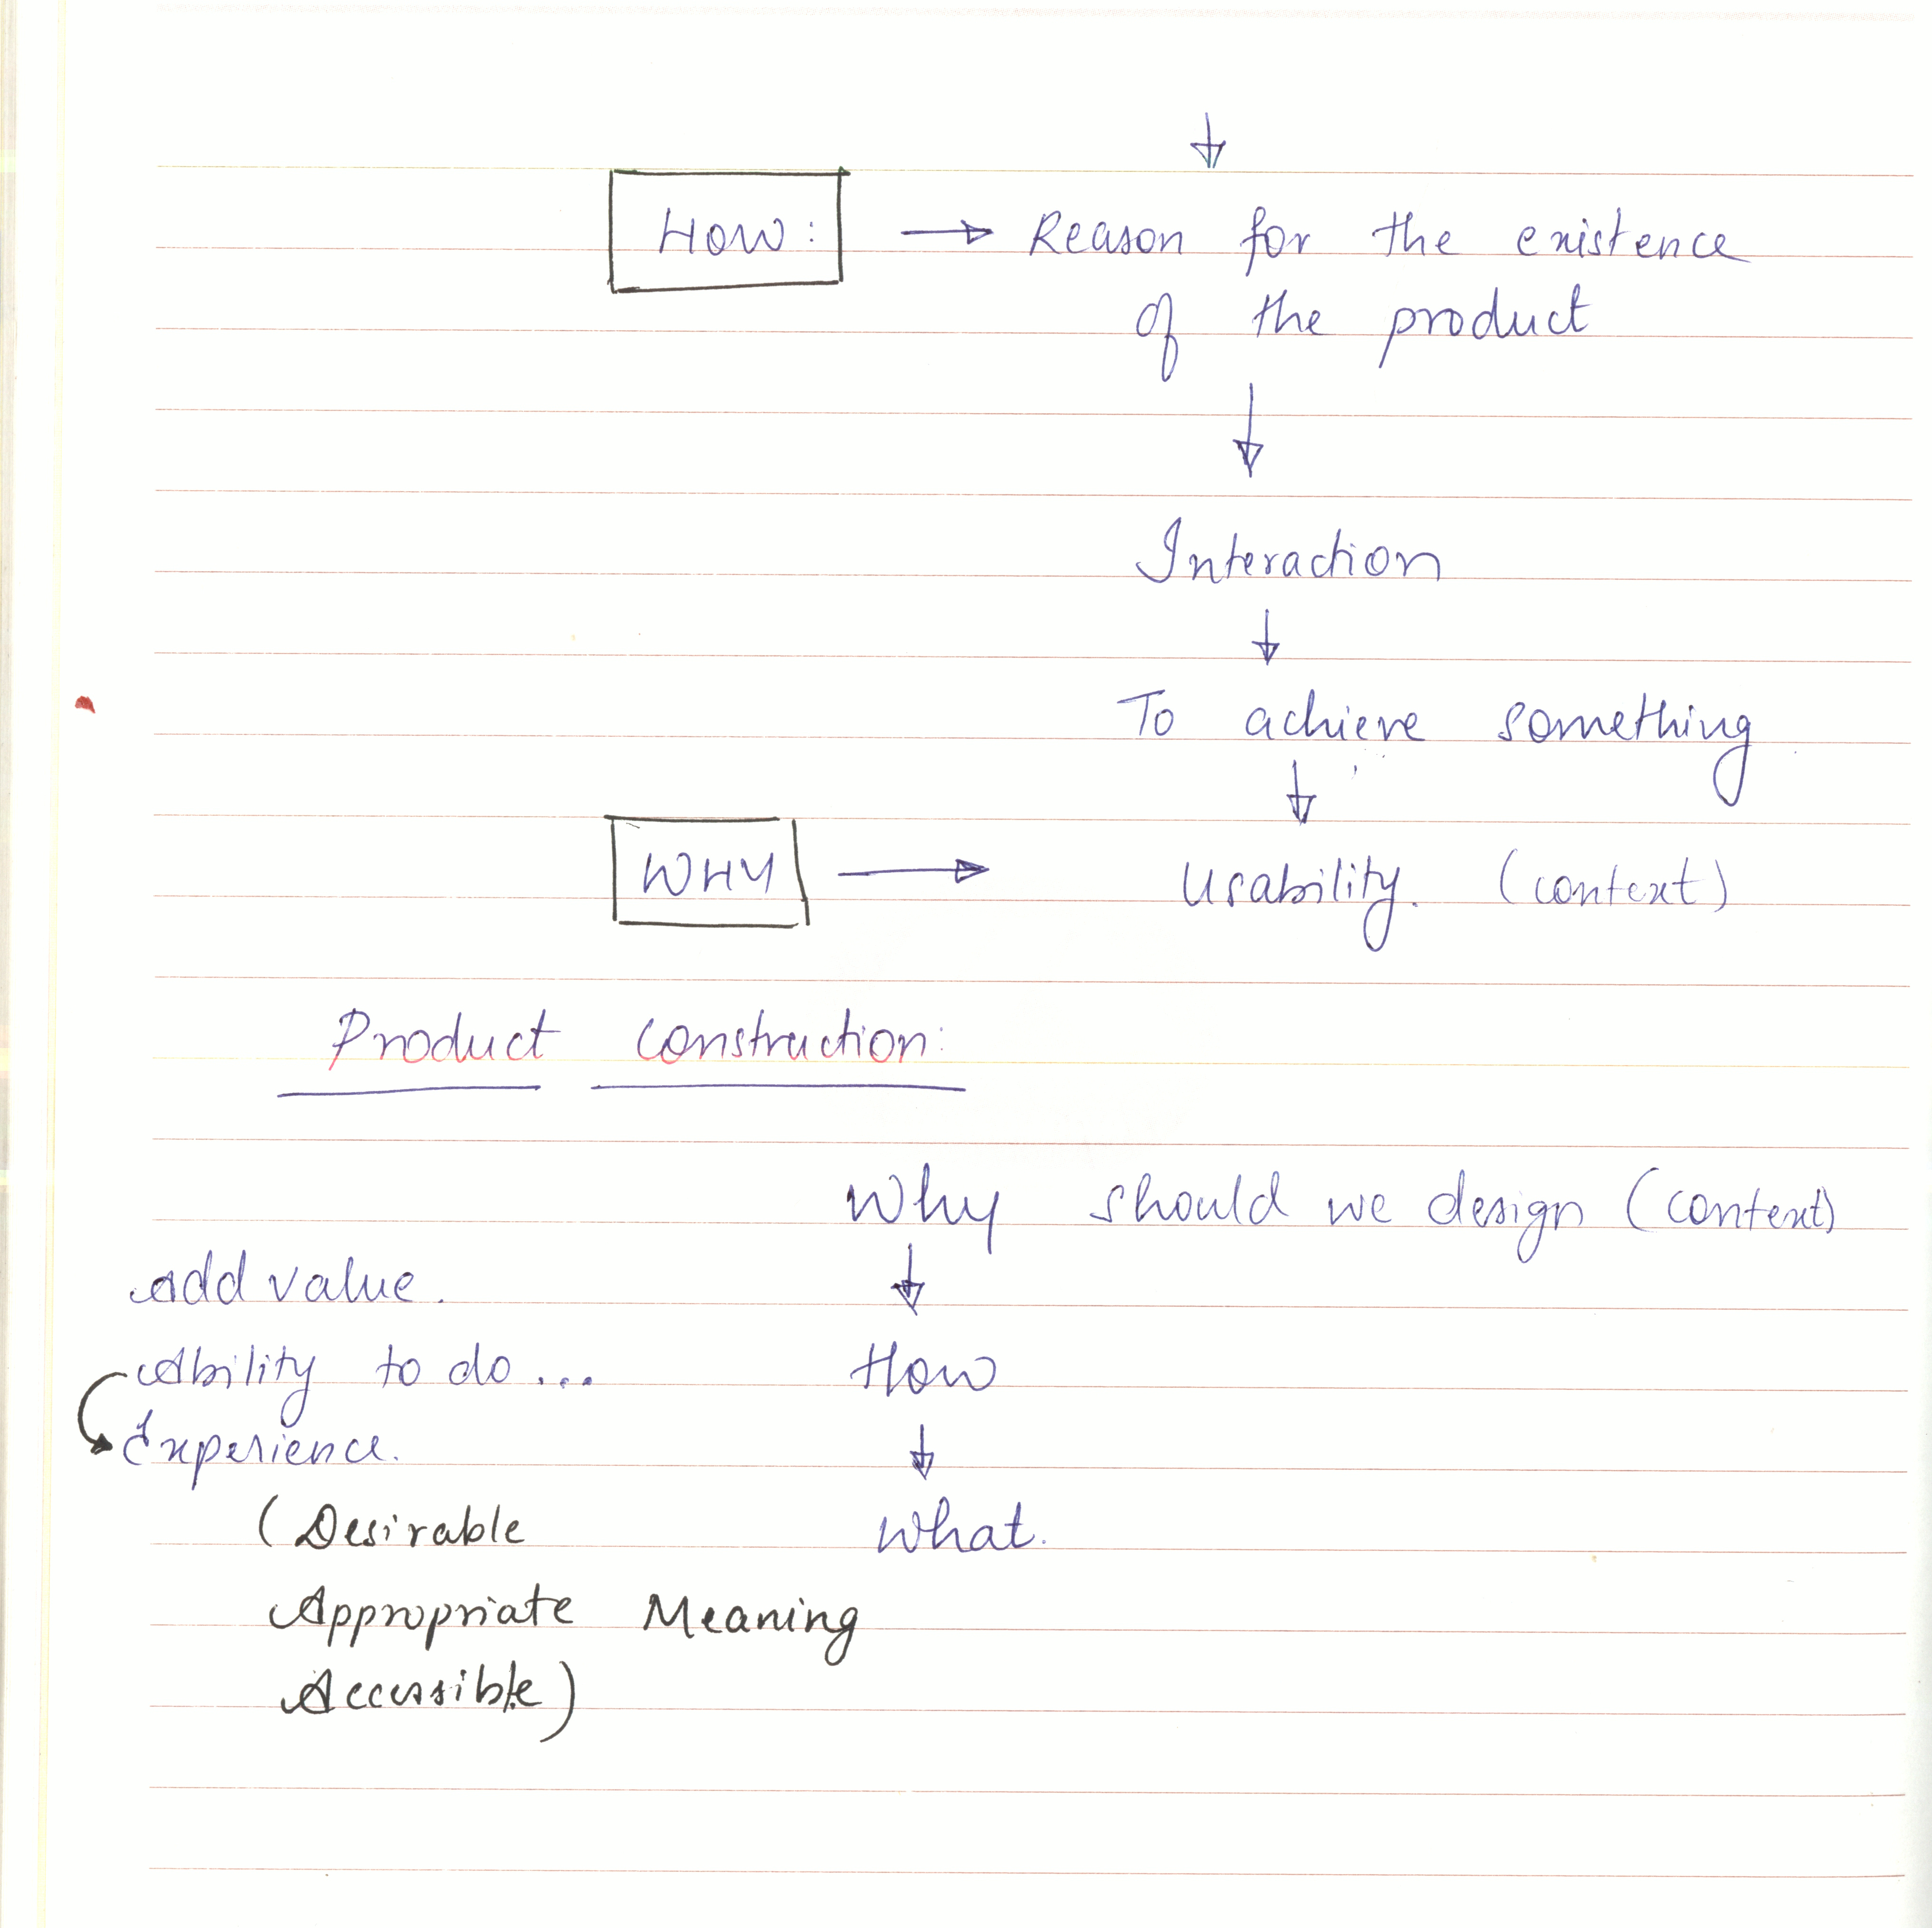 ↓
HOW: → Reason for the existence
of the product
↓
Interaction
↓
To achieve something
↓
WHY → Usability. (context)
Product construction:
Why should we design (context)
↓
add value.
Ability to do ... How
↓
Experience.
(Desirable what.
Appropriate Meaning
Accessible)